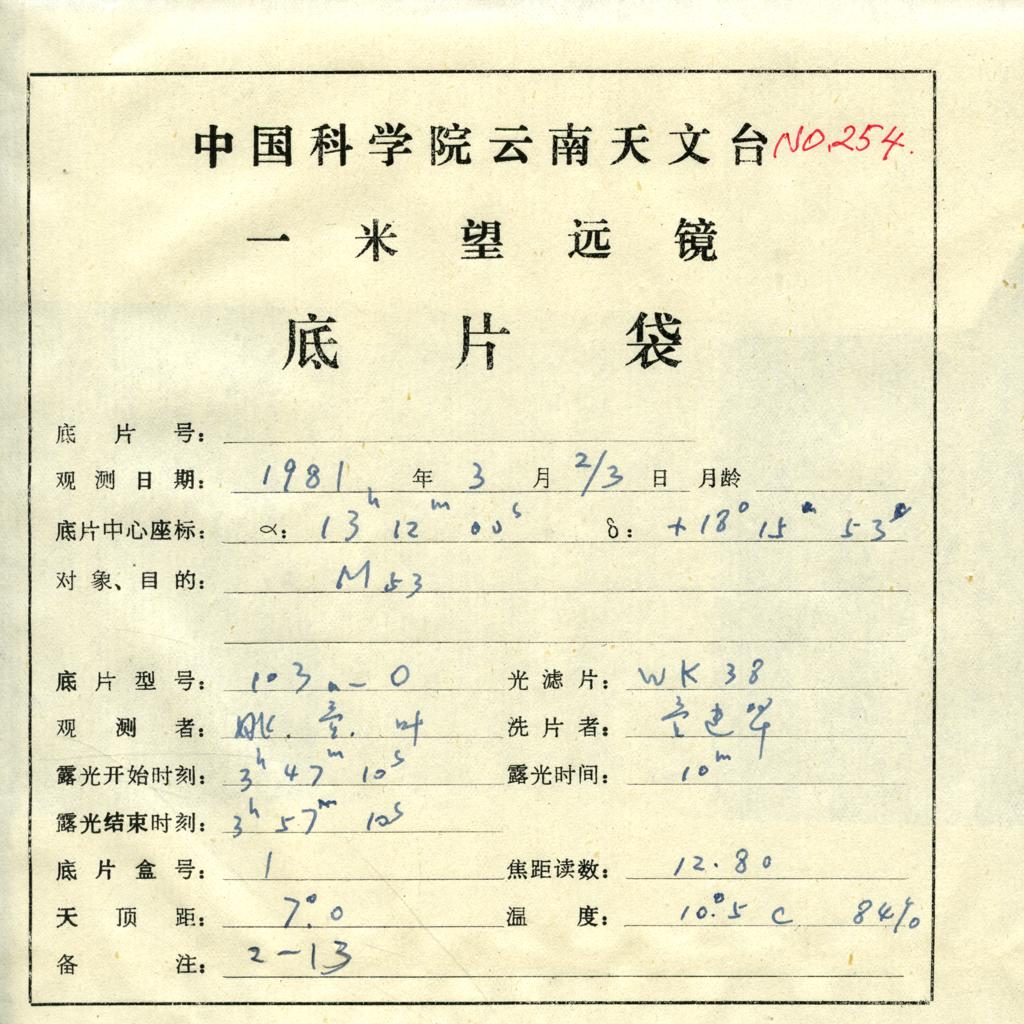 中国科学院云南天文台 NO.254.
一米望远镜
底片袋
底片号：
观测日期： 1981 年 3 月 2/3 日 月龄
底片中心座标： α： 13h 12m 00s δ： +18° 15' 53"
对象、目的： M53
底片型号： 103a-O 光滤片： WK38
观测者： 姚. 叶 洗片者：
露光开始时刻： 3h 47m 10s 露光时间： 10m
露光结束时刻： 3h 57m 10s
底片盒号： 1 焦距读数： 12.80
天顶距： 7°.0 温度： 10°.5 C 84%
备注： 2-13